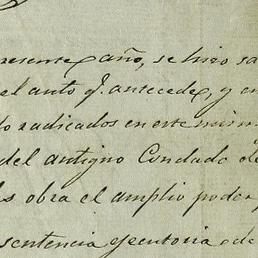 presente año, se hizo sa
el auto q.e antecede, y en
do radicados en este mism
del antiguo Condado de
es obra el amplio poder,
sentencia ejecutoria de